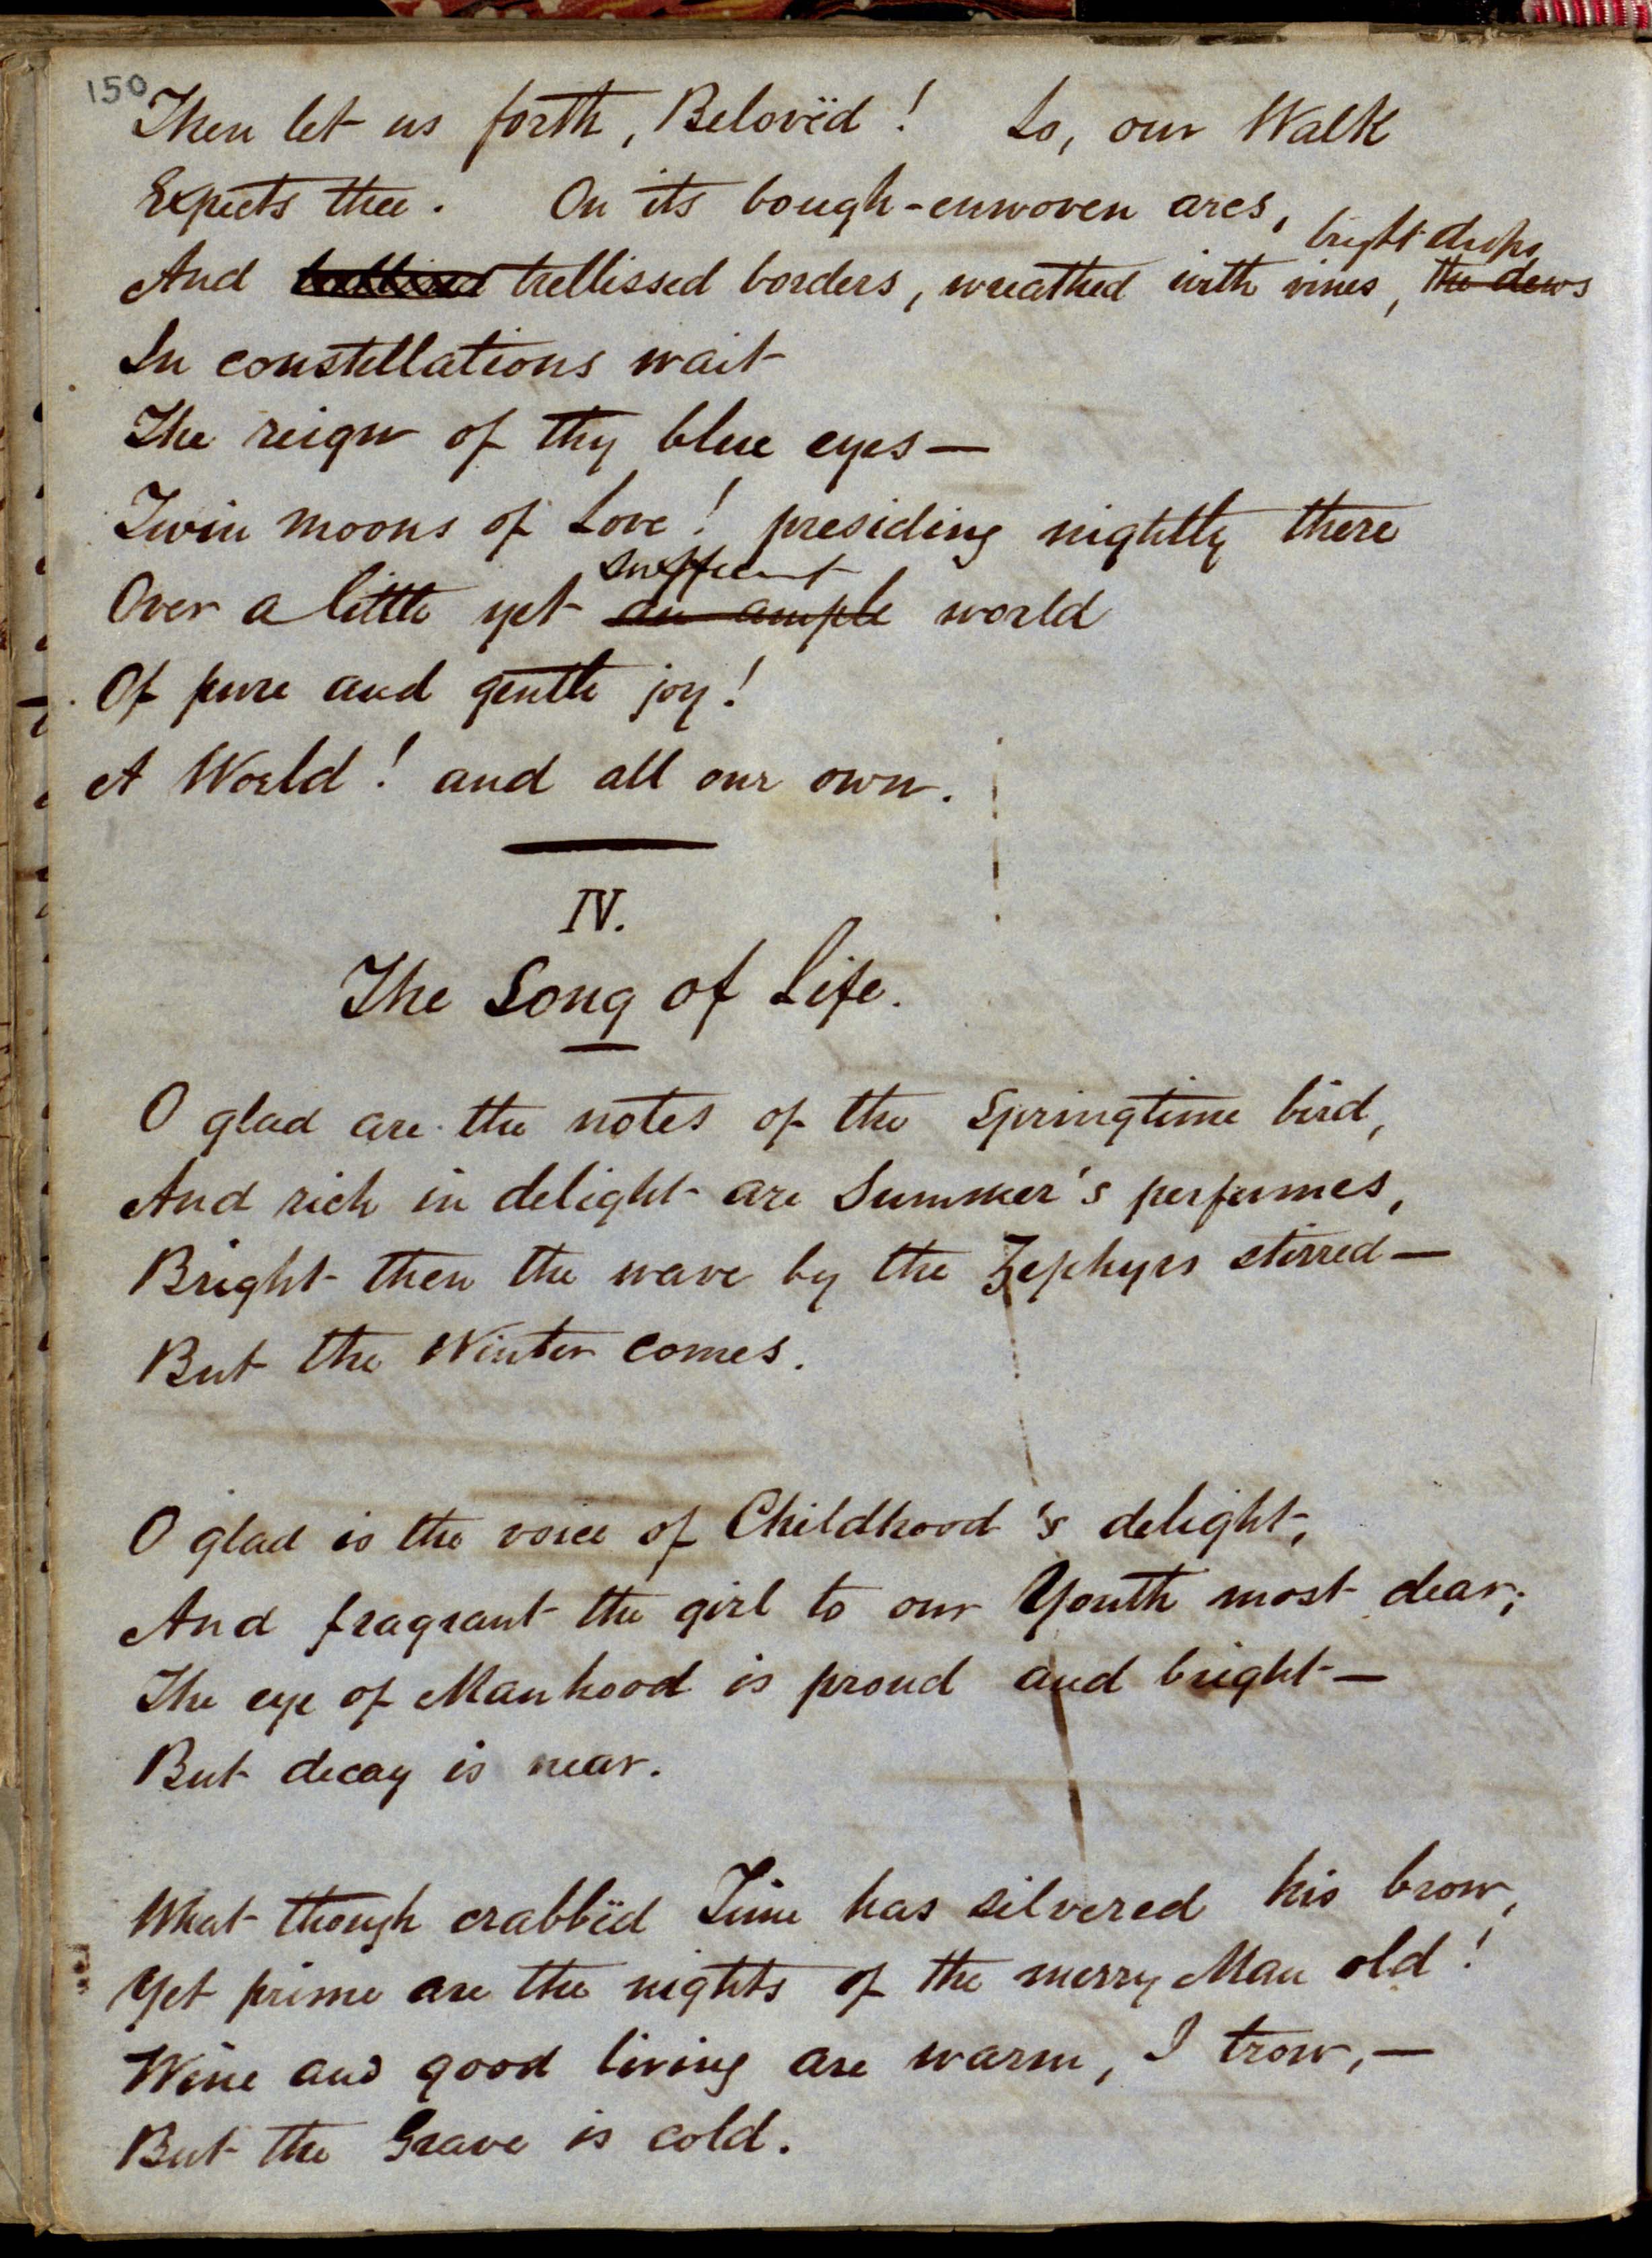 150
Then let us forth, Belovëd! Lo, our Walk
Expects thee. On its bough-enwoven arcs,
bright drops
And trellissed borders, wreathed with vines, the dews
In constellations wait
The reign of thy blue eyes—
Twin moons of Love! presiding nightly there
sufficient
Over a little yet an ample world
Of pure and gentle joy!
A World! and all our own.
IV.
The Song of Life.
O glad are the notes of the Springtime bird,
And rich in delight are Summer's perfumes,
Bright then the wave by the Zephyrs stirred—
But the Winter comes.
O glad is the voice of Childhood's delight,
And fragrant the girl to our Youth most dear;
The eye of Manhood is proud and bright—
But decay is near.
What though crabbëd Time has silvered his brow,
Yet prime are the nights of the merry Man old!
Wine and good living are warm, I trow,—
But the Grave is cold.